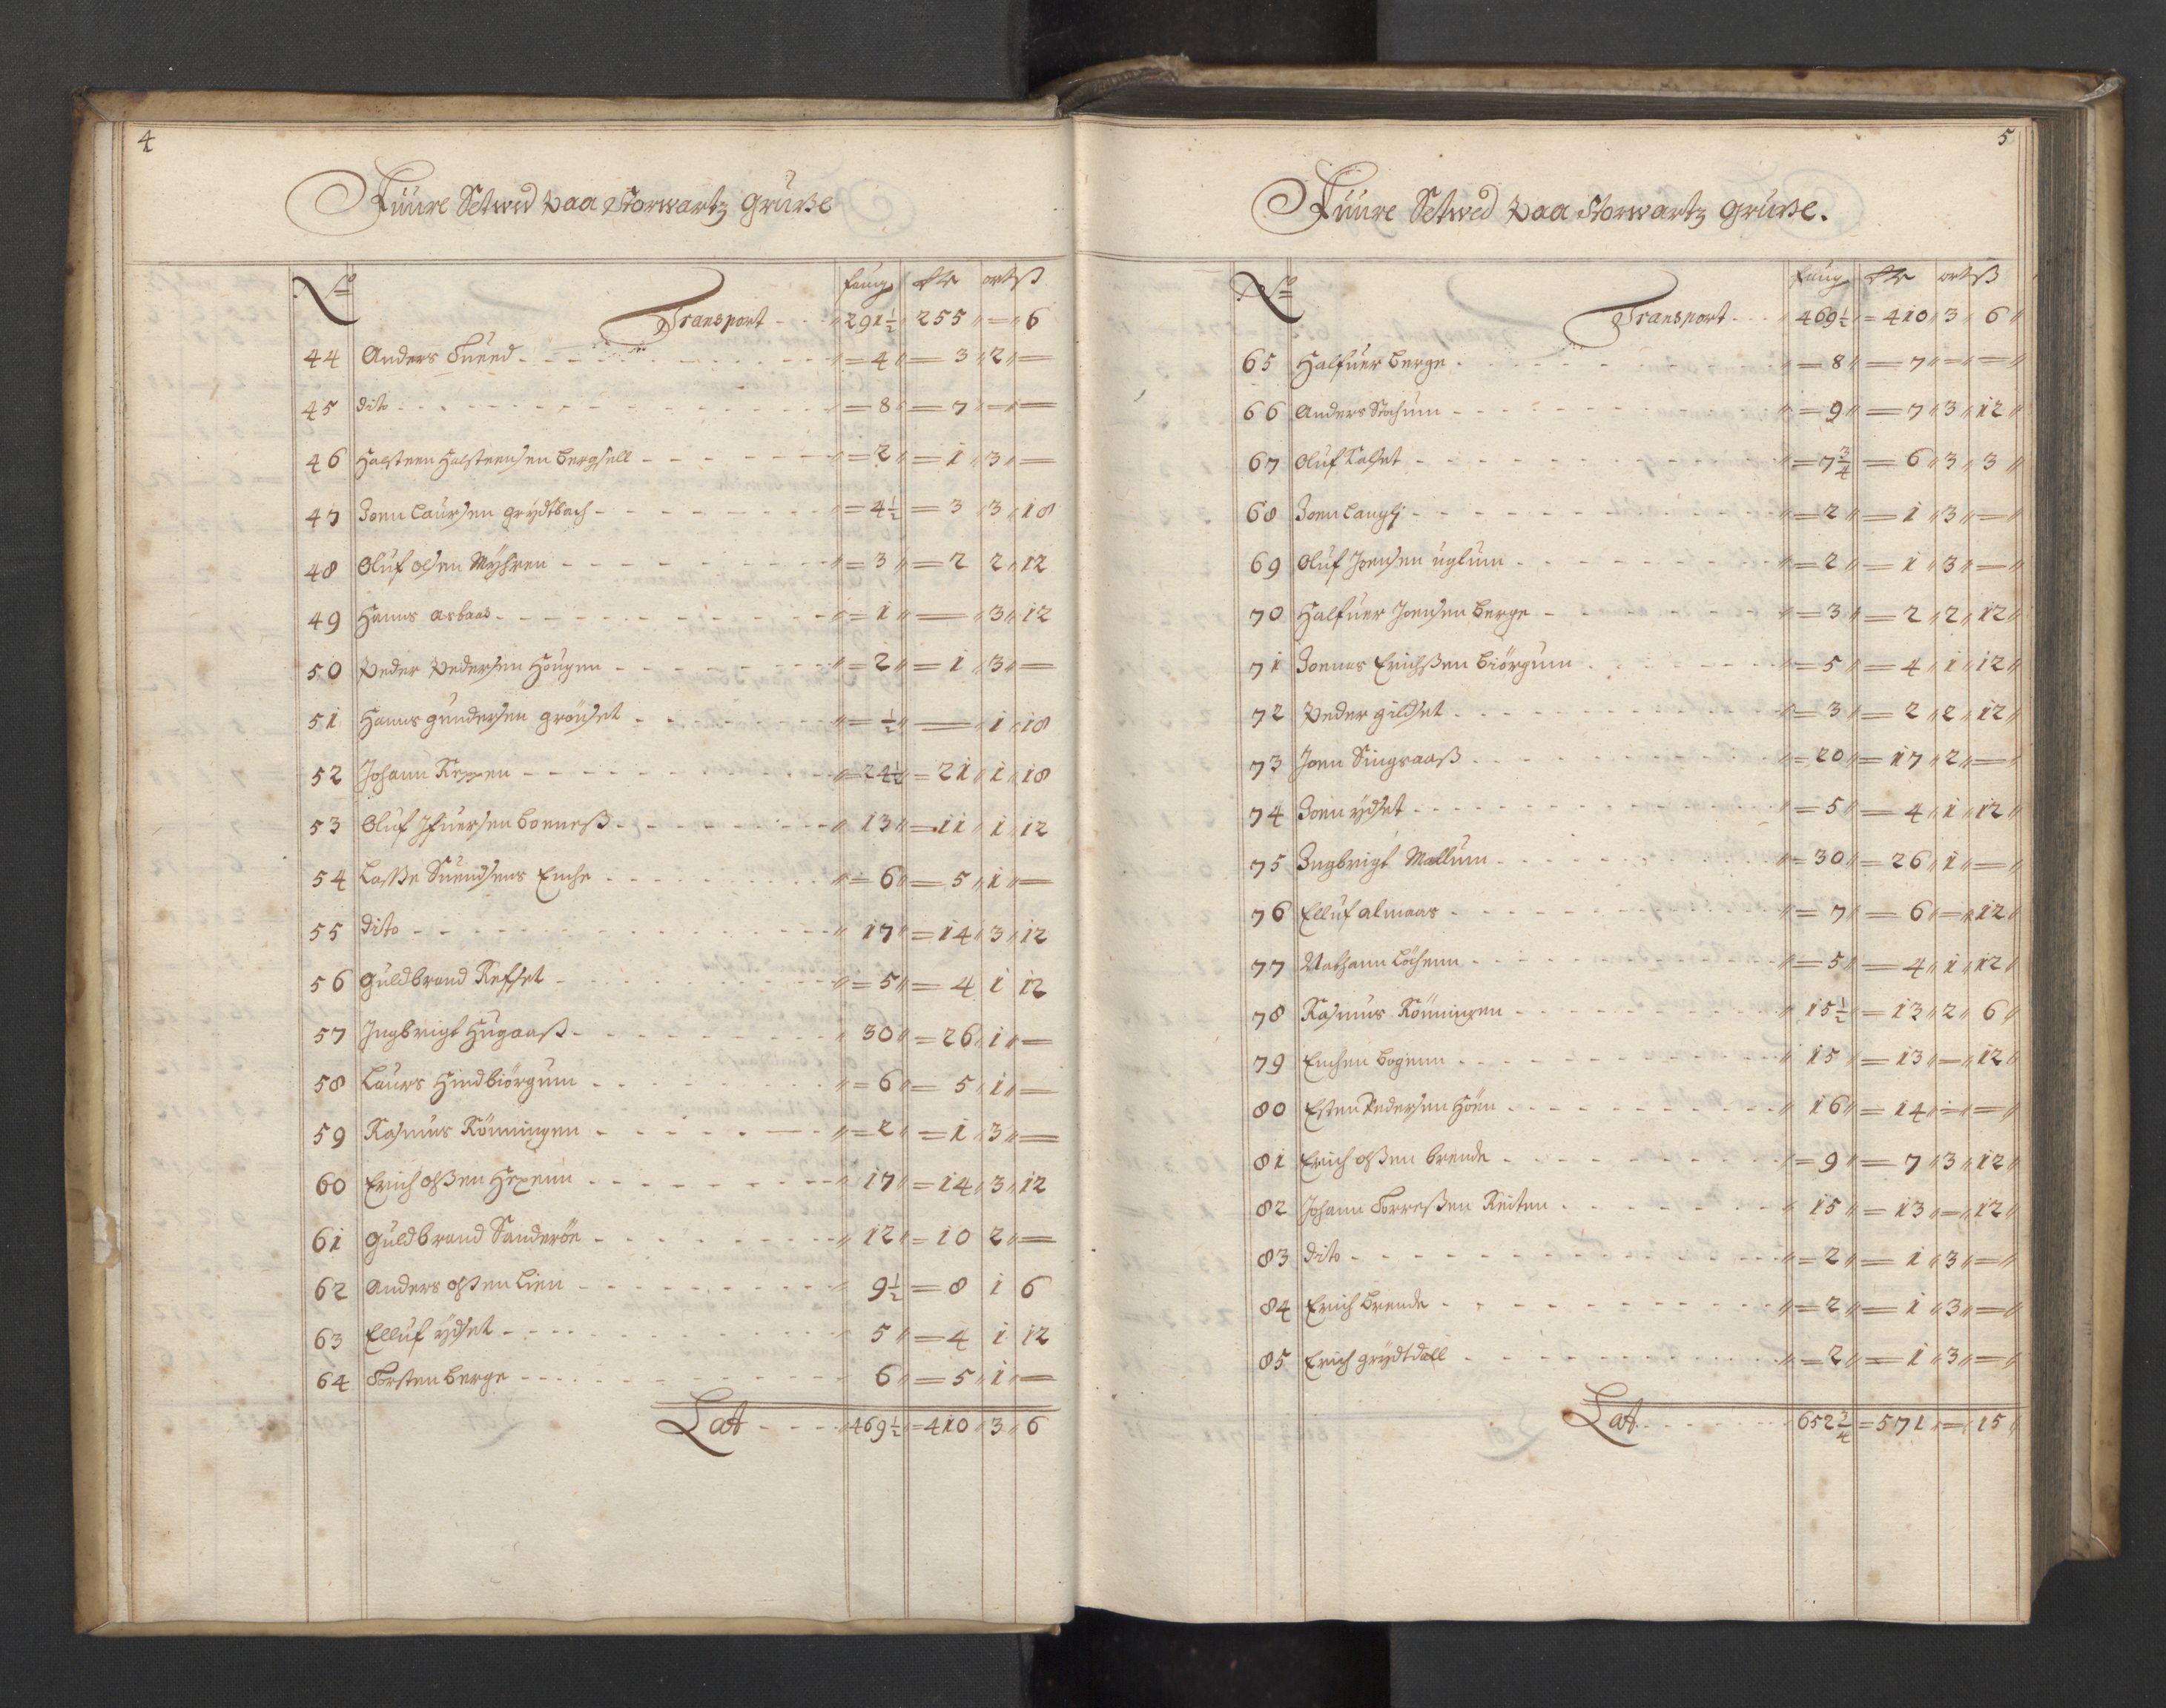 4
Fuure Setwed paa Storwartz Gruße
No faug Rdr ort ß
Transport - - - 291½ 255 = 6
44 Anders Tueed - - - = 4 = 3 2 =
45 dito - - - = 8 = 7 = =
46 Halsteen Halsteensen Bergsell - - - = 2 = 1 3 =
47 Joen Laursen Grydtbach - - - = 4½ = 3 3 18
48 Oluf olsen Myhren - - - = 3 = 2 2 12
49 Hanns Asbaas - - - = 1 = 3 12
50 Peder Pedersen Hougen - - - = 2 = 1 3 =
51 Hanns Gundersen Grönset - - - = ½ = 1 18
52 Johann Reppen - - - = 24½ = 21 1 18
53 Oluf Ifuersen Boeneß - - - 13 = 11 1 12
54 Laße Suendsens Enche - - - = 6 = 5 1 =
55 dito - - - 17 = 14 3 12
56 Guldbrand Refset - - - = 5 = 4 1 12
57 Ingbrigt Hugaaß - - - 30 = 26 1 =
58 Laurs Hindbiörgum - - - = 6 = 5 1 =
59 Rasmus Rönningen - - - = 2 = 1 3 =
60 Erich olßen - - - 17 = 14 3 12
61 Guldbrand Sanderöe - - - 12 = 10 2 =
62 Anders olßen Lien - - - 9½ = 8 1 6
63 Elluf ydset - - - 5 = 4 1 12
64 Torsten Berge - - - 6 = 5 1 =
Lat - - - 469½ = 410 3 6
5
Fuure Setwed paa Storwartz Gruße.
No faug Rdr ort ß
Transport - - - 469½ = 410 3 6
65 Halfuer Berge - - - = 8 = 7 = =
66 Anders Stochum - - - = 9 = 7 3 12
67 Oluf Kalset - - - = 7¾ = 6 3 3
68 Joen Langlj - - - = 2 = 1 3 =
69 Oluf Joensen uglum - - - = 2 = 1 3 =
70 Halfuer Joensen Berge - - - = 3 = 2 2 12
71 Joenas Erichßen Biörgum - - - = 5 = 4 1 12
72 Peder Gildset - - - = 3 = 2 2 12
73 Joen Singsaaß - - - = 20 = 17 2 =
74 Joen ydset - - - = 5 = 4 1 12
75 Ingbrigt Mallum - - - = 30 = 26 1 =
76 Elluf Almaas - - - = 7 = 6 = 12
77 Nathann Löchenn - - - = 5 = 4 1 12
78 Rasmus Rönningen - - - 15½ = 13 2 6
79 Enchen Bogenn - - - 15 = 13 = 12
80 Esten Pedersen Höen - - - 16 = 14 = =
81 Erich olßen Brende - - - = 9 = 7 3 12
82 Johann Torreßen Reiten - - - 15 = 13 = 12
83 dito - - - = 2 = 1 3 =
84 Erich Brende - - - = 2 = 1 3 =
85 Erich Grydtdall - - - = 2 = 1 3 =
Lat - - - 652¾ = 571 = 15